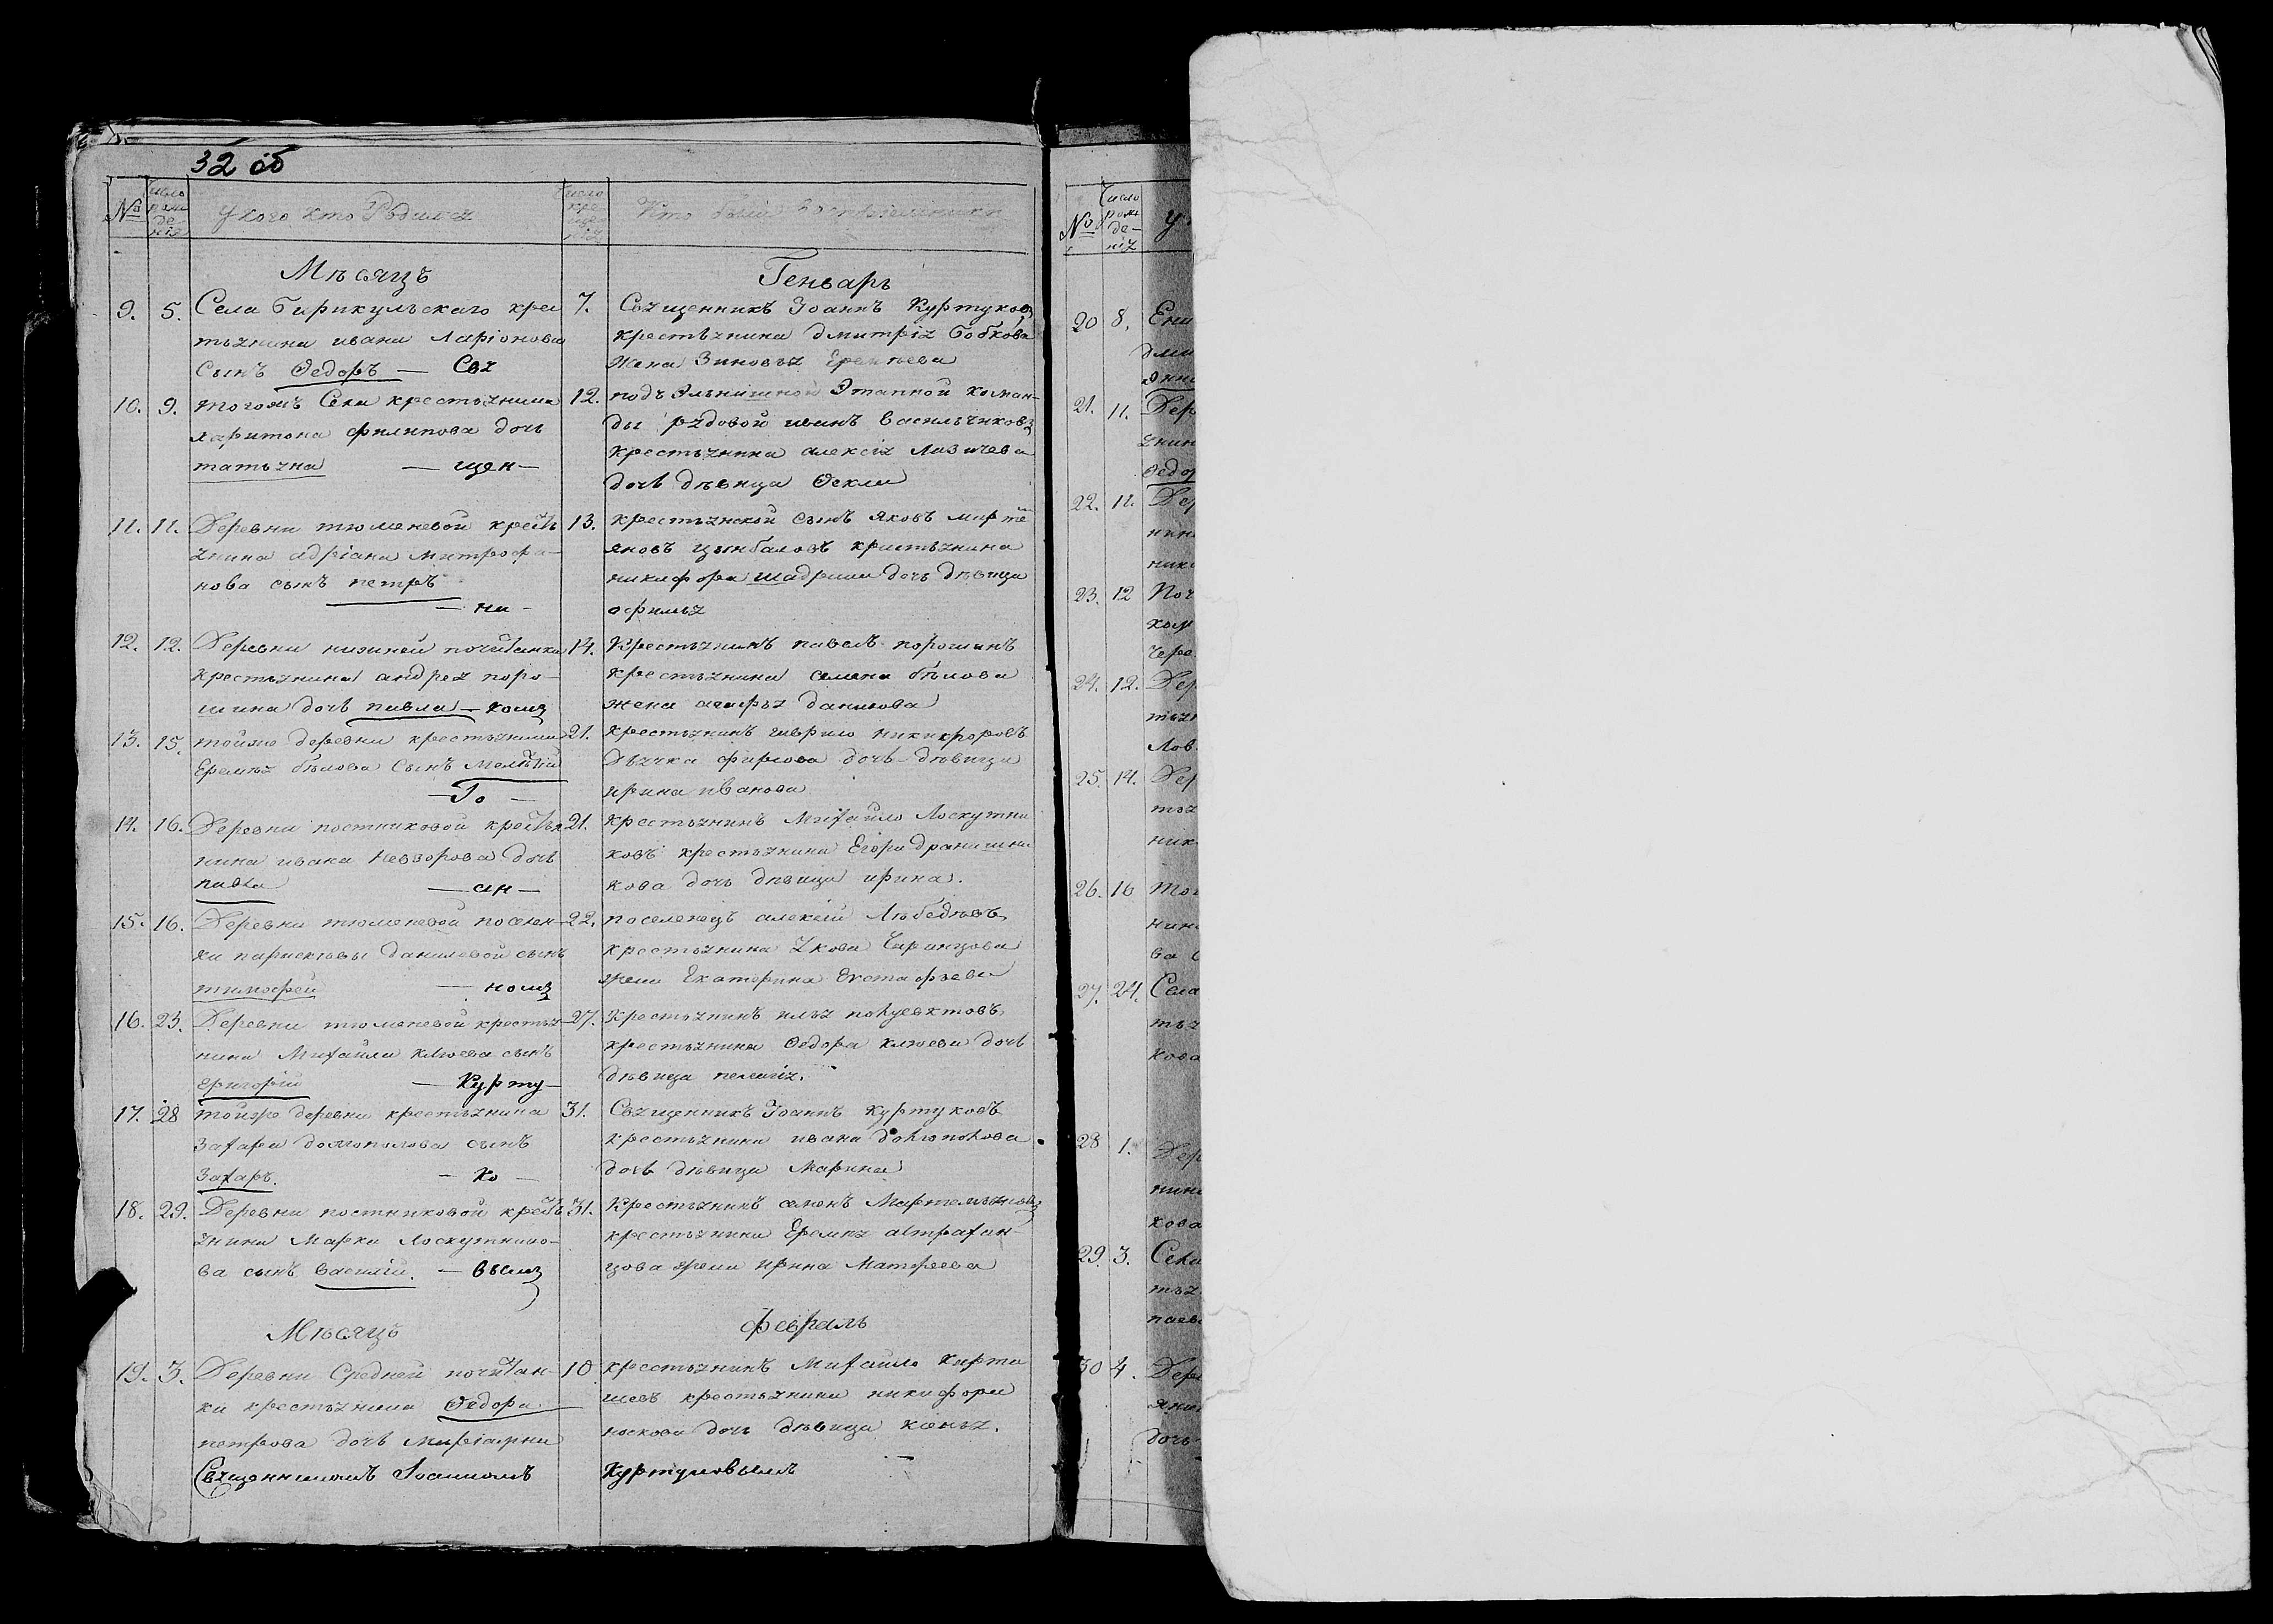 32 об
№
Число рожде-нія
У кого кто Родился
Число кре-щенія
Кто были воспріемники
Мѣсяцъ
Генварь
9. 5. Села Бирикульскаго крес
тьянина ивана Ларіонова
Сынъ Ѳедоръ — Свя
7. Священникъ Іоаннъ Куртуковъ
крестьянина дмитрія Бобкова
жена Зиновья
10. 9. тогожъ Села крестьянина
харитона филипова дочь
татьяна — щен —
12. подъ Ельнишной Этапной коман-
ды рядовой иванъ васильчиковъ
крестьянина алексія Лазичева
дочь дѣвица Ѳекла
11. 11. Деревни тюменевой кресть
янина адріана митрофа-
нова сынъ петръ
— ни —
13. крестьянской сынъ яковъ мартеі
яновъ цынбаловъ крестьянина
никифора шадрина дочь дѣвица
офимья
12. 12. Деревни нижней почитанки
крестьянина андрея поро-
шина дочь павла — комъ
14. Крестьянинъ павелъ порошинъ
крестьянина семена бѣлова
жена данилова
13. 15. тойже деревни крестьянина
Еремѣя бѣлова Сынъ Мелетій
— Іо —
21. крестьянинъ гаврило никифоровъ
Дьячка фирсова дочь дѣвица
ирина иванова
14. 16. Деревни постниковой крестья
нина ивана Невзорова дочь
павла — ан —
21. крестьянинъ Михайло Лоскутни
ковъ крестьянина Егора дранишни
кова дочь дѣвица ирина.
15. 16. Деревни тюменевой поселен-
ки парасковьи даниловой сынъ
тимофей — номъ
22. поселенецъ алексѣй Лебедевъ
крестьянина Якова
жена Екатерина Евстафьева
16. 23. Деревни тюменевой крестья-
нина Михайла клюева сынъ
григорій — Курту —
27. крестьянинъ илья полуехтовъ
крестьянина Ѳедора клюева дочь
дѣвица пелагія.
17. 28 тойже деревни крестьянина
Захара долгополова сынъ
Захаръ. — ко —
31. Священникъ Іоаннъ Куртуковъ
крестьянина ивана долгополова
дочь дѣвица Марина
18. 29. Деревни постниковой кресть
янина Марка Лоскутнико-
ва сынъ василій. — вымъ
31. Крестьянинъ семенъ Мартемьяновъ
крестьянина Еремѣя астрахан-
цова жена Ирина Матфеева
Мѣсяцъ
февраль
19. 3. Деревни Средней почитан-
ки крестьянина Ѳедора
петрова дочь Маріамна
Священникомъ Іоанномъ
10 крестьянинъ Михайло Карта
шевъ крестьянина никифора
носкова дочь дѣвица ксенья.
Куртуковымъ
№
Число рожде-нія
У
20 8. Ени
дми
Анна
21. 11. Дер
янин
Ѳедор
22. 11. Дер
нин
ник
23. 12 Поч
24. 12. Дер
тья
Лов
25. 14. Дер
тья
ник
26. 16 Тог
нин
ва с
27. 24. Села
тья
кова
28 1. Дер
нин
кова
29. 3. Села
тья
паев
30 4. Дер
янин
дочь